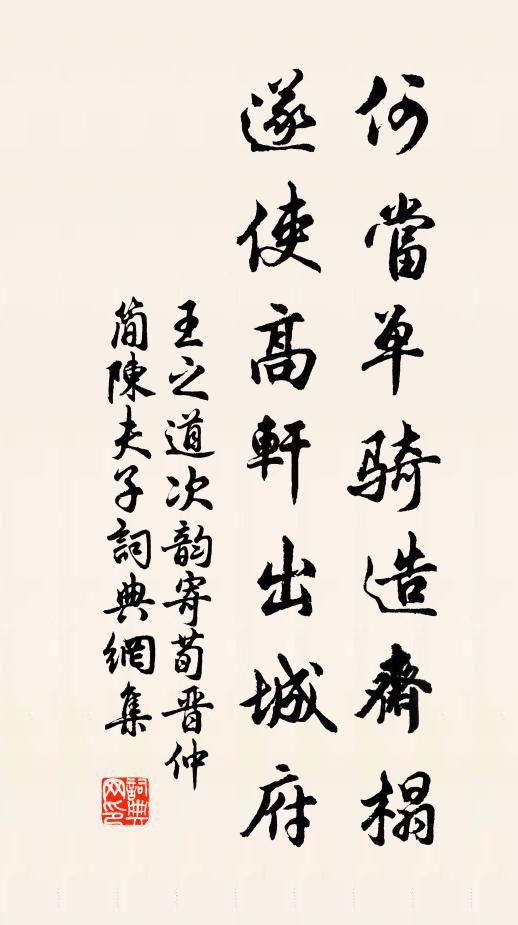 何當单骑造齋榻
遂使高軒出城府
王之道次韵寄荀晋仲
簡陳夫子詞典網集
詞典网印